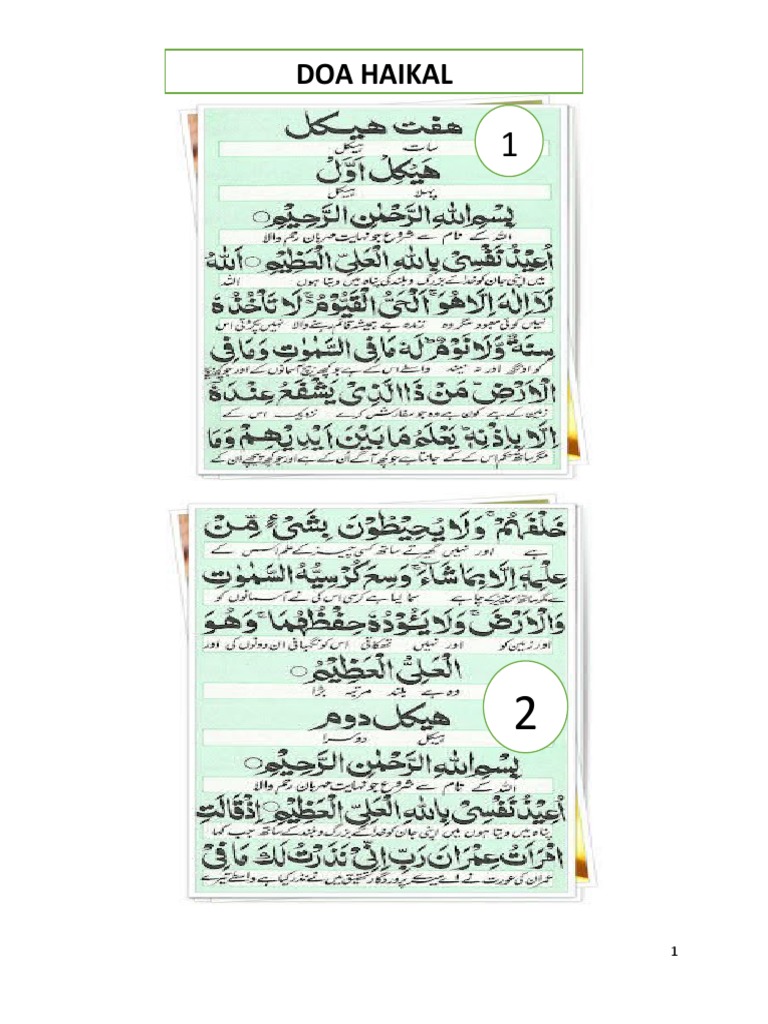 DOA HAIKAL
1
هفت هيكل
سات ہیکل
هَيْكِلْ اَوَّلْ
پہلا ہیکل
بِسْمِ اللهِ الرَّحْمٰنِ الرَّحِيْمِ
اللہ کے نام سے شروع جو نہایت مہربان رحم والا
اُعِيْذُ نَفْسِىْ بِاللهِ الْعَلِىِّ الْعَظِيْمِ اَللهُ
میں اپنی جان کو خدائے بزرگ و بلند کی پناہ میں دیتا ہوں اللہ
لَا اِلٰهَ اِلَّا هُوَ اَلْحَىُّ الْقَيُّوْمُ لَا تَأْخُذُهٗ
نہیں کوئی معبود مگر وہ زندہ ہے ہمیشہ قائم رہنے والا نہیں پکڑتی اس
سِنَةٌ وَّلَا نَوْمٌ لَهٗ مَا فِى السَّمٰوٰتِ وَمَا فِى
کو اونگھ اور نہ نیند واسطے اس کے ہے جو کچھ بیچ آسمانوں کے اور جو کچھ بیچ
الْاَرْضِ مَنْ ذَا الَّذِىْ يَشْفَعُ عِنْدَهٗ
زمین کے ہے کون ہے وہ جو سفارش کرے نزدیک اس کے
اِلَّا بِاِذْنِهٖ يَعْلَمُ مَا بَيْنَ اَيْدِيْهِمْ وَمَا
مگر ساتھ حکم اس کے کے جانتا ہے جو کچھ آگے اُن کے ہے اور جو کچھ پیچھے ان کے
خَلْفَهُمْ وَلَا يُحِيْطُوْنَ بِشَىْءٍ مِّنْ
ہے اور نہیں گھیرتے ساتھ کسی چیز کے علم اس کے
عِلْمِهٖ اِلَّا بِمَا شَاءَ وَسِعَ كُرْسِيُّهُ السَّمٰوٰتِ
سما لیا ہے کرسی اس کی نے آسمانوں کو
وَالْاَرْضَ وَلَا يَـُٔوْدُهٗ حِفْظُهُمَا وَهُوَ
اور زمین کو اور نہیں تھکاتی اس کو نگہبانی ان دونوں کی اور
الْعَلِىُّ الْعَظِيْمُ
وہ ہے بلند مرتبہ بڑا
2
هيكل دوم
ہیکل دوسرا
بِسْمِ اللهِ الرَّحْمٰنِ الرَّحِيْمِ
اللہ کے نام سے شروع جو نہایت مہربان رحم والا
اُعِيْذُ نَفْسِىْ بِاللهِ الْعَلِىِّ الْعَظِيْمِ اِذْ قَالَتِ
پناہ میں دیتا ہوں میں اپنی جان کو خدائے بزرگ و بلند کے ساتھ جب کہا
امْرَاَتُ عِمْرَانَ رَبِّ اِنِّىْ نَذَرْتُ لَكَ مَا فِىْ
عمران کی عورت نے اے میرے پروردگار تحقیق میں نے نذر کیا ہے واسطے تیرے
1